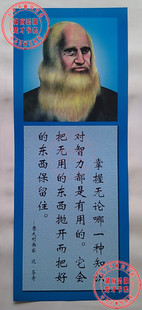 掌握无论哪一种知
对智力都是有用的。它会
把无用的东西抛开而把好
的东西保留住。
——意大利画家 达·芬奇